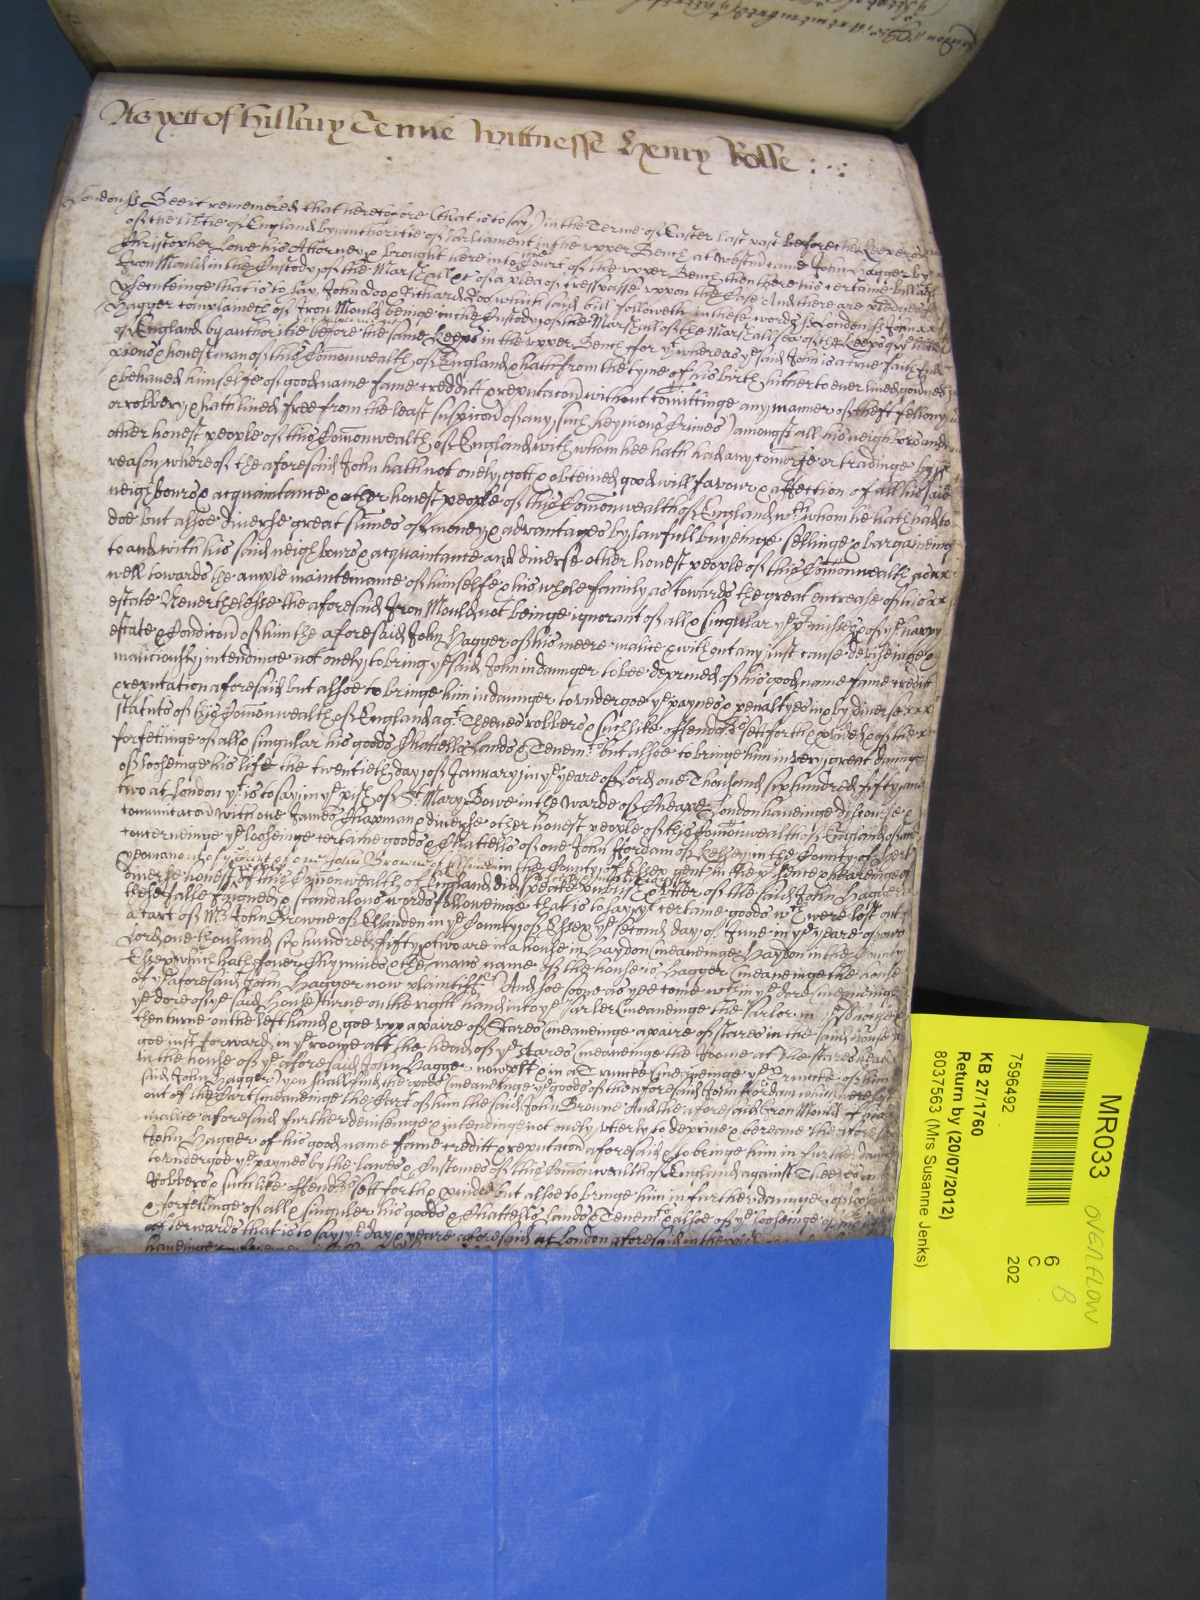 As yett of Hillary Terme Wittnesse Henry Rolle
London ss Bee it remembred that heretofore (that is to say) in the Terme of Easter last past before the Keepers
of the lib'tie of England by authoritie of Parliament in the vpper Bench at Westm' came John Hagger by
Christopher Lowe his Attorney & brought here into the Court of the vpper Bench then there his certaine bill ag't
Iron Mould in the Custody of the Marshall &c of a plea of tresspasse vppon the Case And there are pledges of
p'secuteinge that is to say John doo & Richard Roo which said bill followeth in these words ss London ss John
Hagger complaineth of Iron Mould beinge in the Custody of the Marshall of the Marshallsea of the Keepers of ye lib'tie
of England by authoritie of Parliament before the same Keep's in the vpper Bench for yt whereas ye said John is a true faithfull
pious & honest man of this Com'onwealth of England & hath from the tyme of his birth hitherto ever lived gov'ned
& behaved himselfe of good name fame creditt & reputac'on without com'ittinge any manner of theft fellony
or robbery & hath lived free from the least suspic'on of any such heynous Crimes amongst all his neighbors and
other honest people of this Com'onwealth of England with whom hee hath had any com'erse or tradinge by
reason whereof the aforesaid John hath not onely gott & obteined good will favour & affection of all his said
neighbours & acquaintance & other honest people of this Com'onwealth of England wth whom he hath had to
doe but alsoe diverse great sum'es of money & advantages by lawfull buyeinge sellinge & bargaineinge
to and with his said neighbours & acquaintance and diverse other honest people of this Com'onwealth as
well towards the ample maintenance of himselfe & his whole family as towards the great encrease of his
estate Neverthelesse the aforesaid Iron Mould not beinge ignorant of all & singular ye p'misses & of ye happy
estate & Condic'on of him the aforesaid John Hagger of his meere malice & without any just cause deviseinge &
maliciously intendinge not onely to bring ye said John in daunger to bee deprived of his good name fame credit
& reputation aforesaid but alsoe to bringe him in daunger to undergoe ye paynes & penaltyes in & by diverse
statuts of this Com'onwealth of England agt Theeves robbers & such like offenders sett forth & p'vided & of the
forfeitinge of all & singular his goods Chattells Lands & Tenemts but alsoe to bringe him in very great daunger
of looseinge his life the twentieth day of January in ye yeare of Lord one Thousand six hundred fifty and
two at London yt is to say in ye p'ish of St Mary Bowe in the Warde of Cheape London haveinge discourse &
com'unicac'on with one James Chapman & diverse other honest people of this Com'onwealth of England of and
concerninge ye looseinge certaine goods & Chattells of one John Jordan of in the County of
yeoman out of ye Cart of one John Browne of in the County of Essex gent in the p'sence & heareinge of
diverse honest people of this Com'onwealth of England did speake publish & vtter of the said John Hagger
these false feigned & scandalous words followeinge that is to say yt certaine goods wch were lost out of
a Cart of Mr John Browne of in ye County of Essex ye second day of June in ye yeare of our
Lord one thousand six hundred fifty & two are in a house in Haydon (meaneinge Haydon in the County
Essex which hath fower Chymnies & the mans name of the house is Hagger (meaneinge the house
of ye aforesaid John Hagger now plaintiff) And soe soone as yee come wthin ye dore (meaneinge
ye dore of ye said house) turne on the right hand into ye Parler (meaneinge the Parlor in ye said house)
then turne on the left hand & goe vpp a paire of Stares (meaneinge a paire of stares in the said house)
goe just forward in ye roome att the head of ye Stares (meaneinge the Roome at the stares head
in the house of ye aforesaid John Hagger now plt & in a Truncke (meaneinge ye Truncke of him
said John Hagger) you shall find the goods (meaneinge ye goods of the aforesaid John Jordan which were lost
out of the Cart (meaneinge the Cart of him the said John Browne And the aforesaid Iron Mould of his
malice aforesaid further deviseinge & intendinge not onely vtterly to deprive & bereave the aforesd
John Hagger of his good name fame creditt & reputac'on aforesaid & to bringe him in further daunger
to undergoe ye paynes by the lawes & Customes of this Com'onwealth of England against Theeves
Robbers & such like offenders sett forth & p'vided but alsoe to bringe him in further daunger of
& forfeitinge of all & singuler his goods & Chattells Lands & Tenemts & alsoe of ye looseinge of his life
afterwards that is to say ye day & yeare aforesaid at London aforesaid in the
haveinge
MR033
OVERFLOW
6
C
B
202
7596492
KB 27/1760
Return by (20/07/2012)
8037563 (Mrs Susanne Jenks)